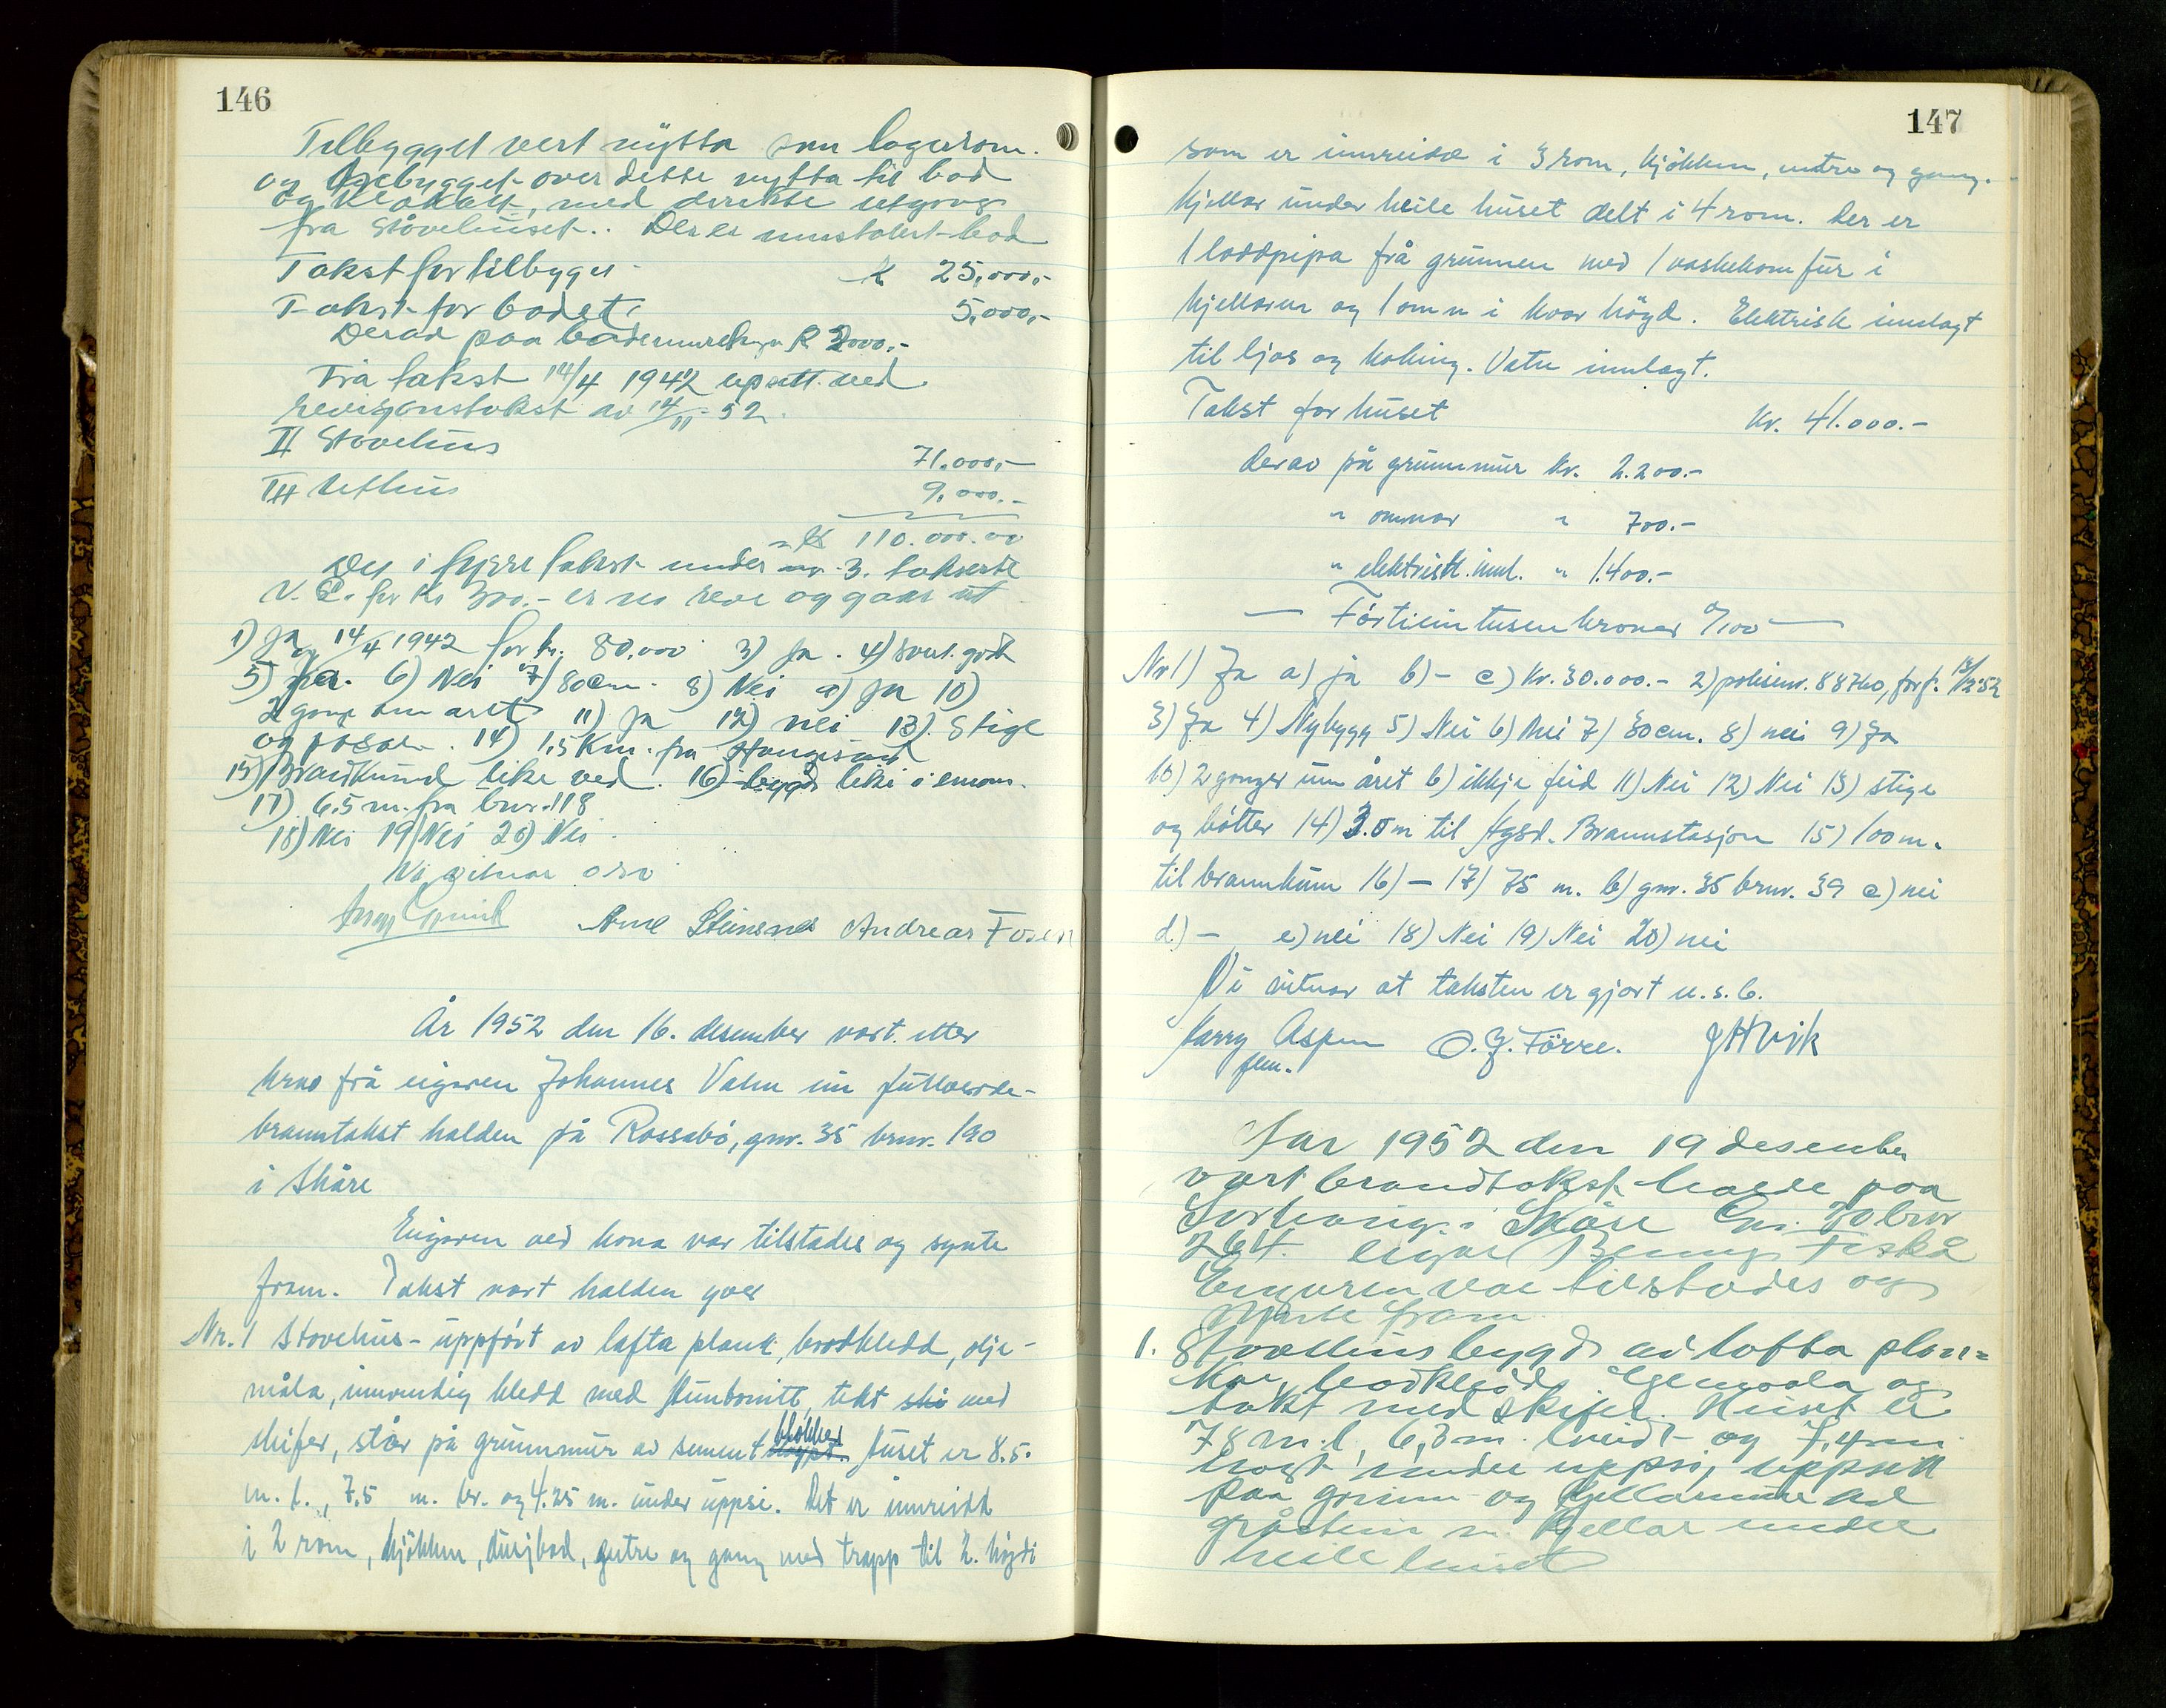 146
Tilbygget vert nytta som lagerrom.
og Overbygget over dette nytta til bad
og Kloset, med direkte utgang
fra Stovehuset. Der er innstalert bad
Takst for tilbyget Kr 25,000,-
Takst for badet 5,000,-
Derav paa bademurchen K 2000.-
Fra takst 14/4 1942 upsett ved
revisjonstakst av 14/11-52.
II Stovehus 71.000,-
III Uthus 9,000.-
= Kr 110.000.00
Det i fyrre takst under nr. 3. takserte
V. C. for Kr 300.- er no reve og gaar ut
1) Ja og 14/4 1942 for kr. 80.000 3) Ja. 4) svert. godt
5) Ja. 6) Nei 7) 80cm. 8) Nei 9) Ja 10)
2 gong om aaret 11) Ja 12) nei 13). Stige
og pøsar. 14) 1,5 Km. fra Haugesund
15) Brandkumd like ved. 16) bygd like i emom.
17) 6.5 m. fra bnr. 118
18) Nei 19) Nei 20) Nei
Vi vitnar osv
Arne Steinsnes Andreas Fosen
År 1952 den 16. desember vart etter
krav frå eigaren Johannes Valen ein fullverde-
branntakst halden på Rossabö, gnr. 35 brnr. 190
i Skåre
Eigaren ved kona var tilstades og synte
fram. Takst vart halden yver
Nr. 1 Stovehus - uppført av lafta plank, bordkledd, olje-
måla, innvendig kledd med Hunbonitt, tekt ski med
skifer, står på grunnmur av sement blokker støypt. Huset er 8.5.
m. l., 7,5 m. br. og 4.25 m. under uppsi. Det er innreidd
i 2 rom, kjökken, dusjbad, yutre og gang med trapp til 2. høgdi
147
som er innreidd i 3 rom, kjökken, entre og gang.
Kjellar under heile huset delt i 4 rom. Der er
1 loddpipa frå grunnen med 1 vaskekomfur i
kjellaren og 1 omn i kvar högd. Elektrisk innlagt
til ljos og koking. Vatn innlagt.
Takst for huset Kr. 41.000.-
derav på grunnmur kr. 2.200.-
" omnar " 700.-
" elektrisk. innl. " 1.400.-
— Førtiein tusen kroner 0/100 —
Nr 1) Ja a) ja b) - c) Kr. 30.000.- 2) polisenr. 88760, forf. 13/12-52
3) Ja 4) Nybygg 5) Nei 6) Nei 7) 30 cm. 8) nei 9) Ja
10) 2 gonger um året b) ikkje feid 11) Nei 12) Nei 13) stige
og bøtter 14) 3.0 m til Hgsd. Brannstasjon 15) 100 m.
til brannkum 16) - 17) 75 m. b) gnr. 35 brnr. 39 c) nei
d) - e) nei 18) Nei 19) Nei 20) nei
Vi vitnar at taksten er gjort u. s. b.
Harry Aspen O. J. Førre. J H Vik
flm.
Aar 1952 den 19 desember
vart brandtakst halde paa
Sørhaug i Skåre Gnr. 40 bnr
264. eigar Fiskå
Eigaren var tilstades og
synte fram
1. Stovehus bygd av lafta plan=
kar, bordkledd, oljemåla og
takt med skifer. Huset er
7,8 m. l, 6,3 m. breidt og 7,4 m
høgt under uppsi, uppsett
paa grunn og Kjellarmur av
gråstein m. Kjellar under
heile huset